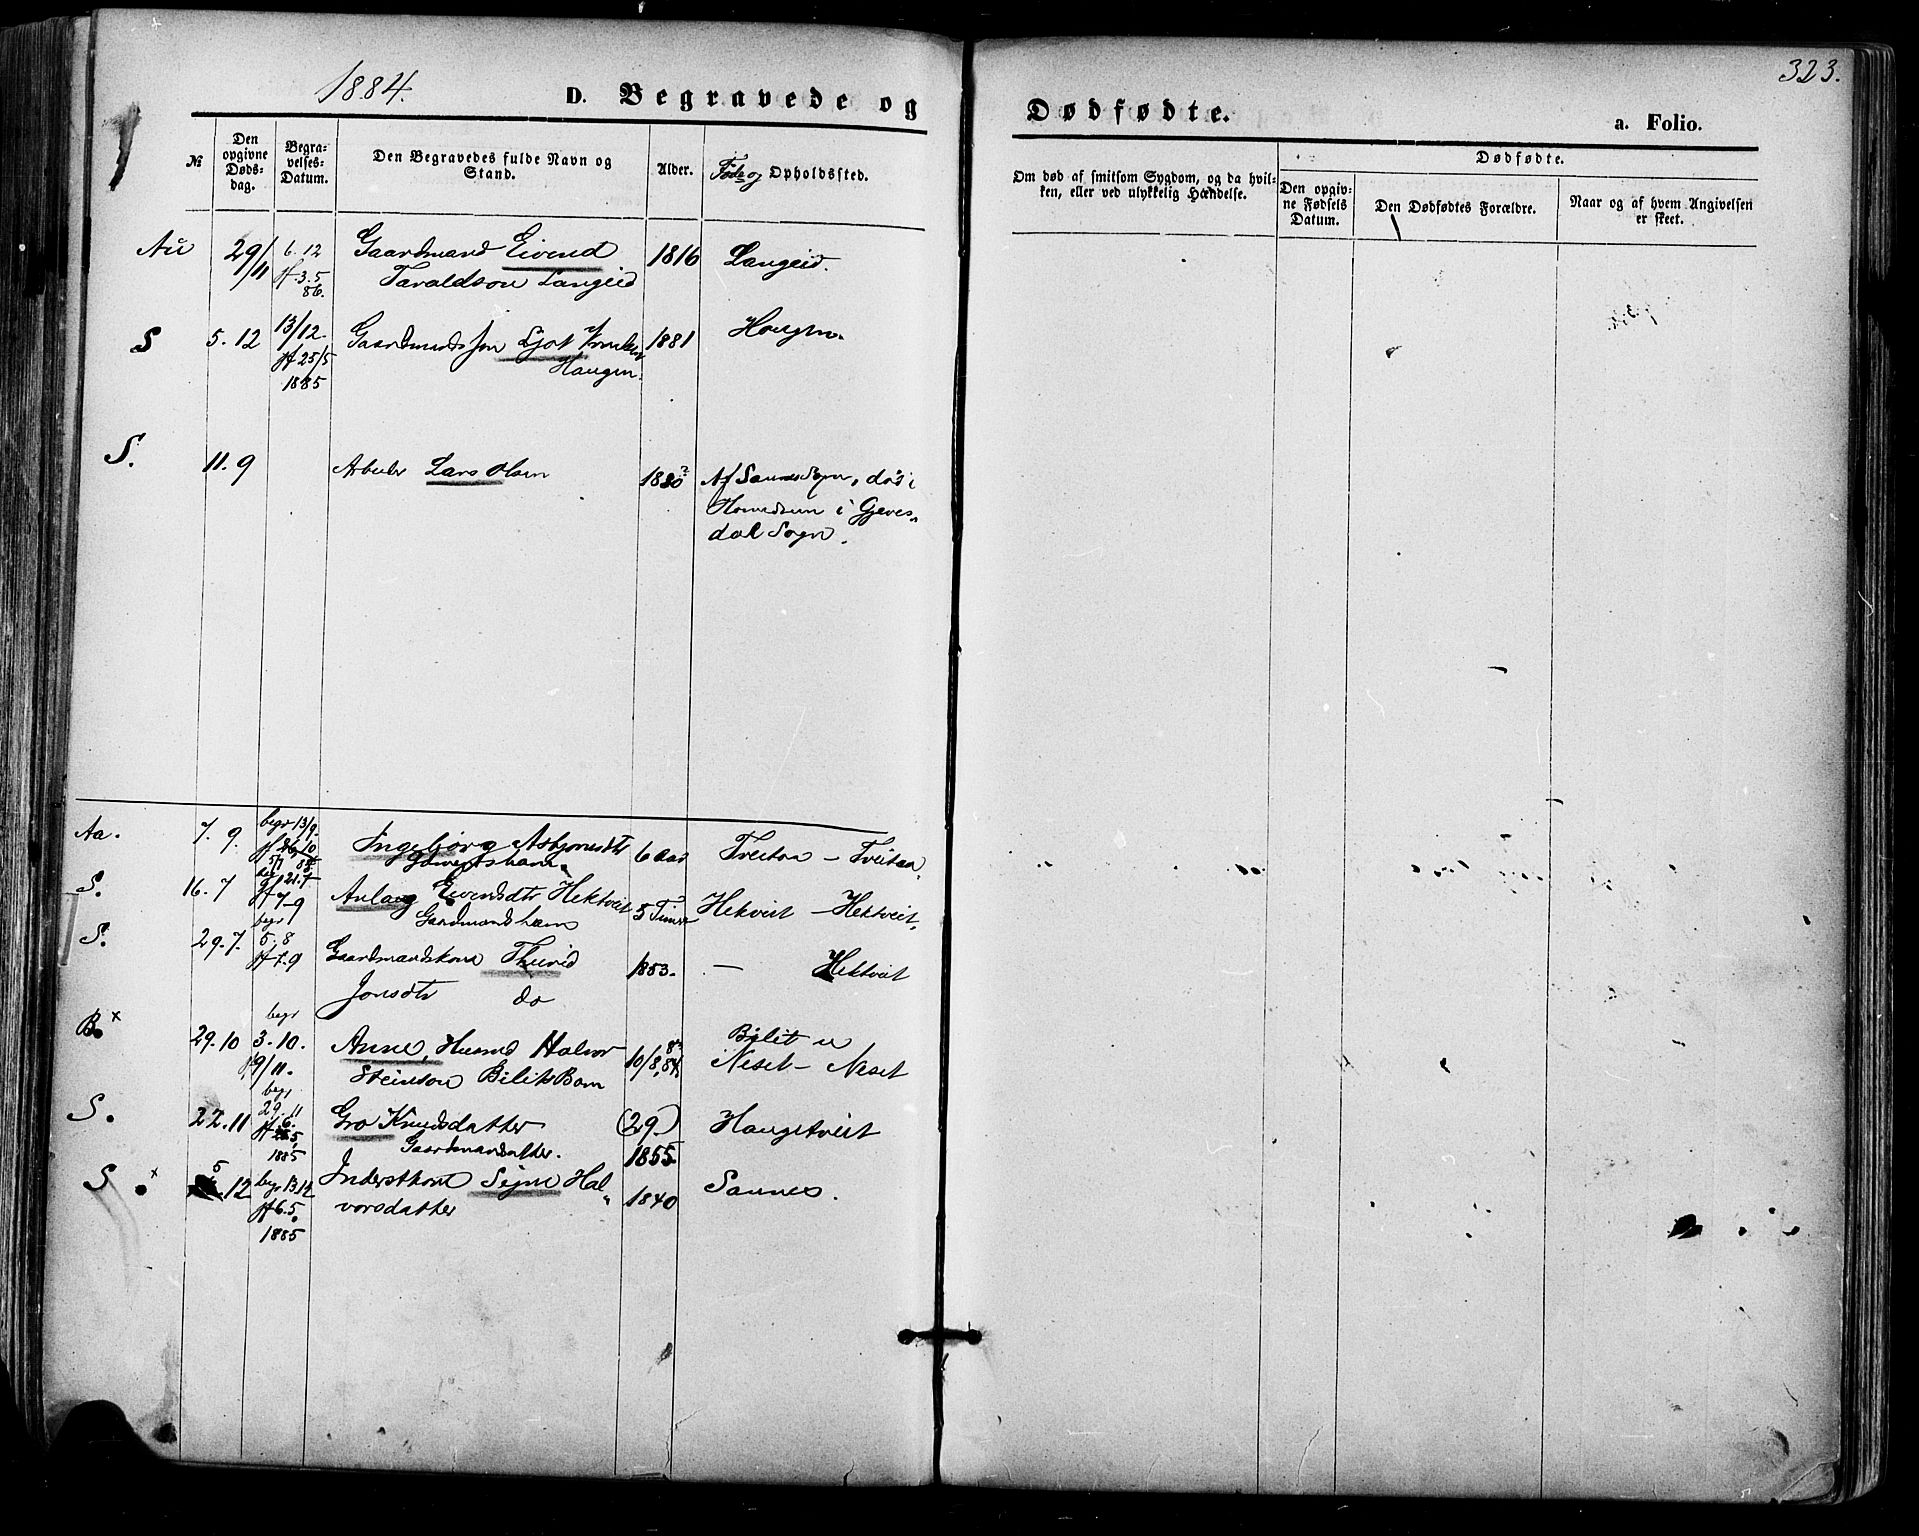 1884.
D. Begravede og
Dødfødte.
323.
a. Folio.
№
Den opgivne Døds-dag.
Begra-velses-Datum.
Den Begravedes fulde Navn og Stand.
Alder.
Føde og Opholdssted.
Om død af smitsom Sygdom, og da hvil-ken, eller ved ulykkelig Hændelse.
Dødfødte.
Den opgiv-ne Fødsels Datum.
Den Dødfødtes Forældre.
Naar og af hvem Angivelsen er skeet.
Au 29/11 6.12 Gaardmand Eivend 1816 Langeid.
jf. 3.5 Taraldson Langeid
86.
S 5.12 13/12. Gaardmands Søn Ljot 1881 Haugen.
jf 25/5 Haugen.
1885
S. 11.9 Arbeider Lars Olsen 1880? Af Sannes Sogn, død i
i Gjeves-
dal Sogn.
Aa. 7.9. begr 13/9. Ingebjørg Asbjørnsdtr 6 Aar Treitaa – Treitaa
S. 16.7 21.7 Aslaug Eivendsdtr Hektveit 5 Timer Hekveit – Hektveit
jf 7-9 Gaardmandsbarn
S. 29.7. begr 5.8 Gaardmandskone Thurid 1853. – Hektveit
jf 7.9 Jonsdtr do
begr
B. x 29.10 3.10. Anne, Husmd Halvor 10/8, 84 Bilit u
9/11. Steinson Bilits Barn Neset – Neset
begr
S. 22.11 29.11 Gro Knudsdatter (29) Haugetveit
jf 6.5 Gaardmandsdatter. 1855.
1885
S. x 5.12 begr 13.12 Inderstkone Signe Hal- 1840 Sannes.
jf 6.5. vorsdatter
1885